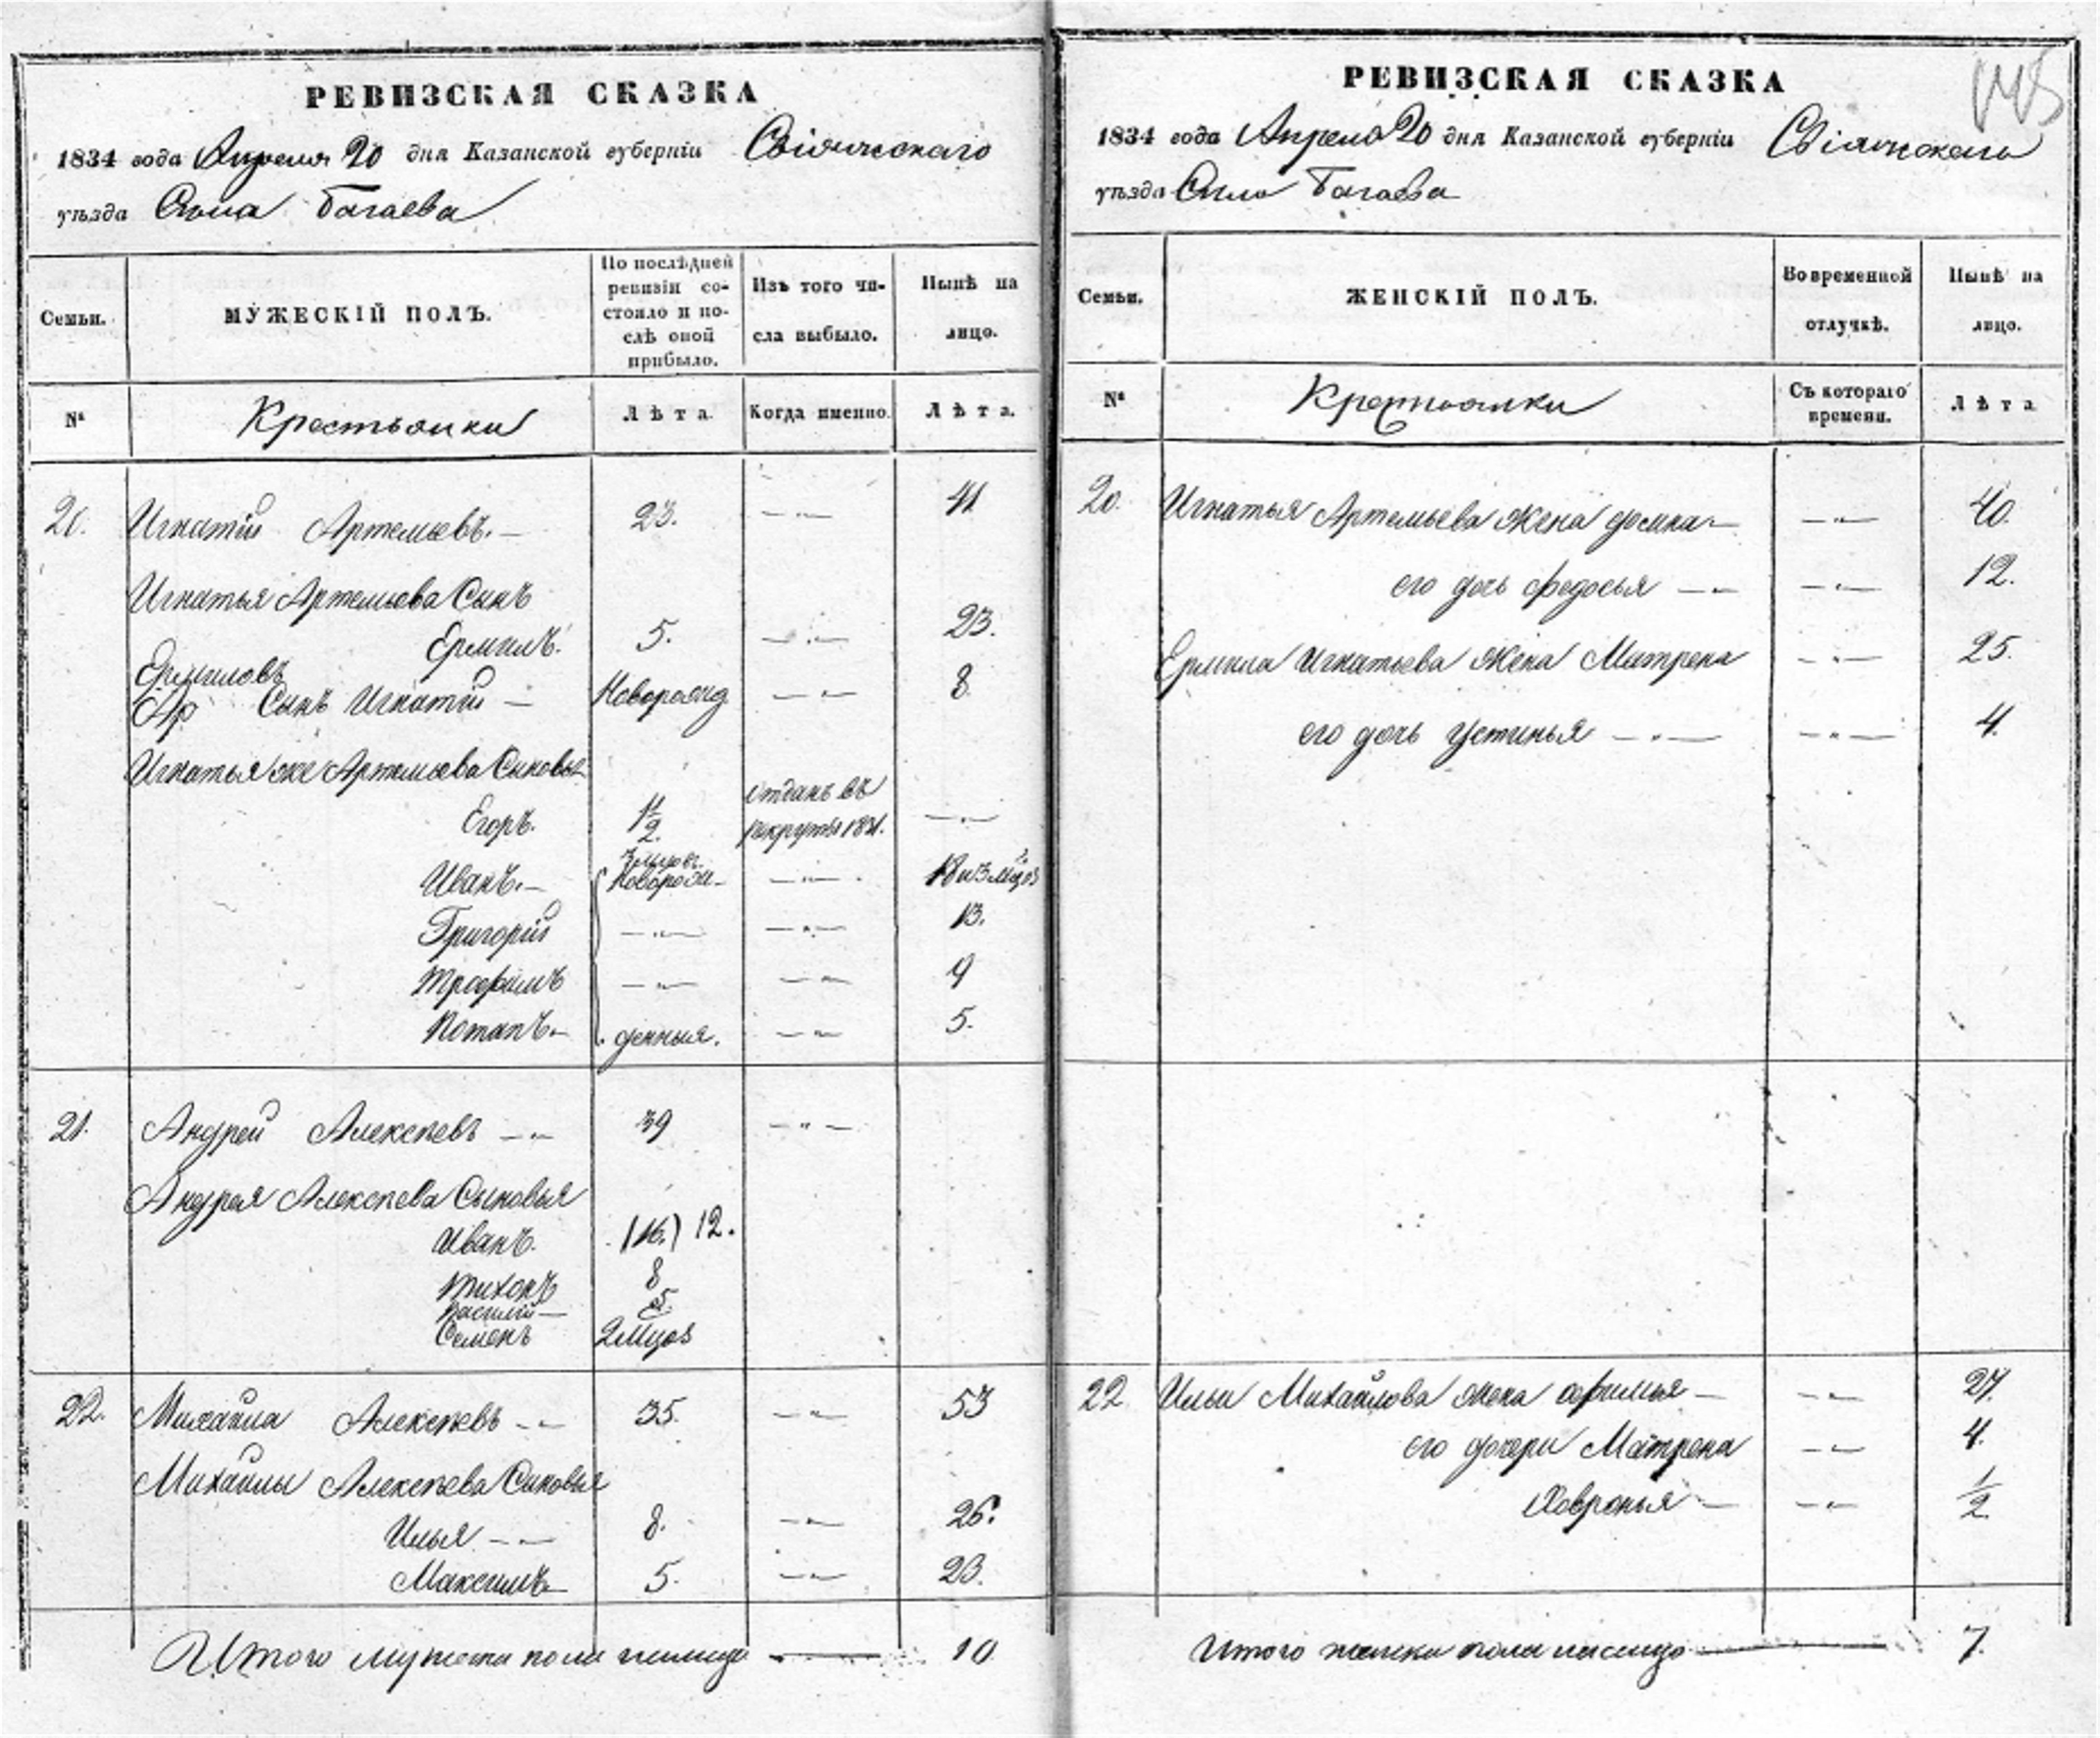 РЕВИЗСКАЯ СКАЗКА
1834 года Апреля 20 дня Казанской губерніи Свіяжскаго
уѣзда Села Багаева
Семьи.
МУЖЕСКІЙ ПОЛЪ.
По послѣдней
ревизіи со-
стояло и по-
слѣ оной
прибыло.
Изъ того чи-
сла выбыло.
Нынѣ на
лицо.
№
Крестьянки
Лѣта
Когда именно.
Лѣта.
20. Игнатій Артемьевъ. 23. 41
Игнатья Артемьева Сынъ
Ермилъ. 5. 23.
Ермиловъ
Ар Сынъ Игнатій Новорожд 8
Игнатья же Артемьева Сыновья
Егоръ. 1 1/2. отданъ въ
рекруты 1831.
Иванъ. 3 мцовъ Новорож- 18 и 3 мцов
Григорій 13.
Трофимъ 9
Потапъ. денныя. 5.
21. Андрей Алексѣевъ 39
Андрея Алексѣева Сыновья
Иванъ. (16.) 12.
Тихонъ 8
Василій 5
Семенъ 2 мцов
22. Михайла Алексѣевъ 35. 53
Михайлы Алексѣева Сыновья
Илья 8. 26.
Максимъ 5. 23.
Итого мужеска пола налицо 10
РЕВИЗСКАЯ СКАЗКА
1834 года Апреля 20 дня Казанской губерніи Свіяжскаго
уѣзда Села Багаева
Семьи.
ЖЕНСКІЙ ПОЛЪ.
Во временной
отлучкѣ.
Нынѣ на
лицо.
№
Крестьянки
Съ котораго
времени.
Лѣта
20. Игнатья Артемьева жена Домна 40.
его дочь Федосья 12.
Ермила Игнатьева жена Матрена 25.
его дочь Устинья 4.
22 Ильи Михайлова жена Афимья 27.
его дочери Матрена 4.
Хавронья 1/2
Итого женска пола налицо 7.